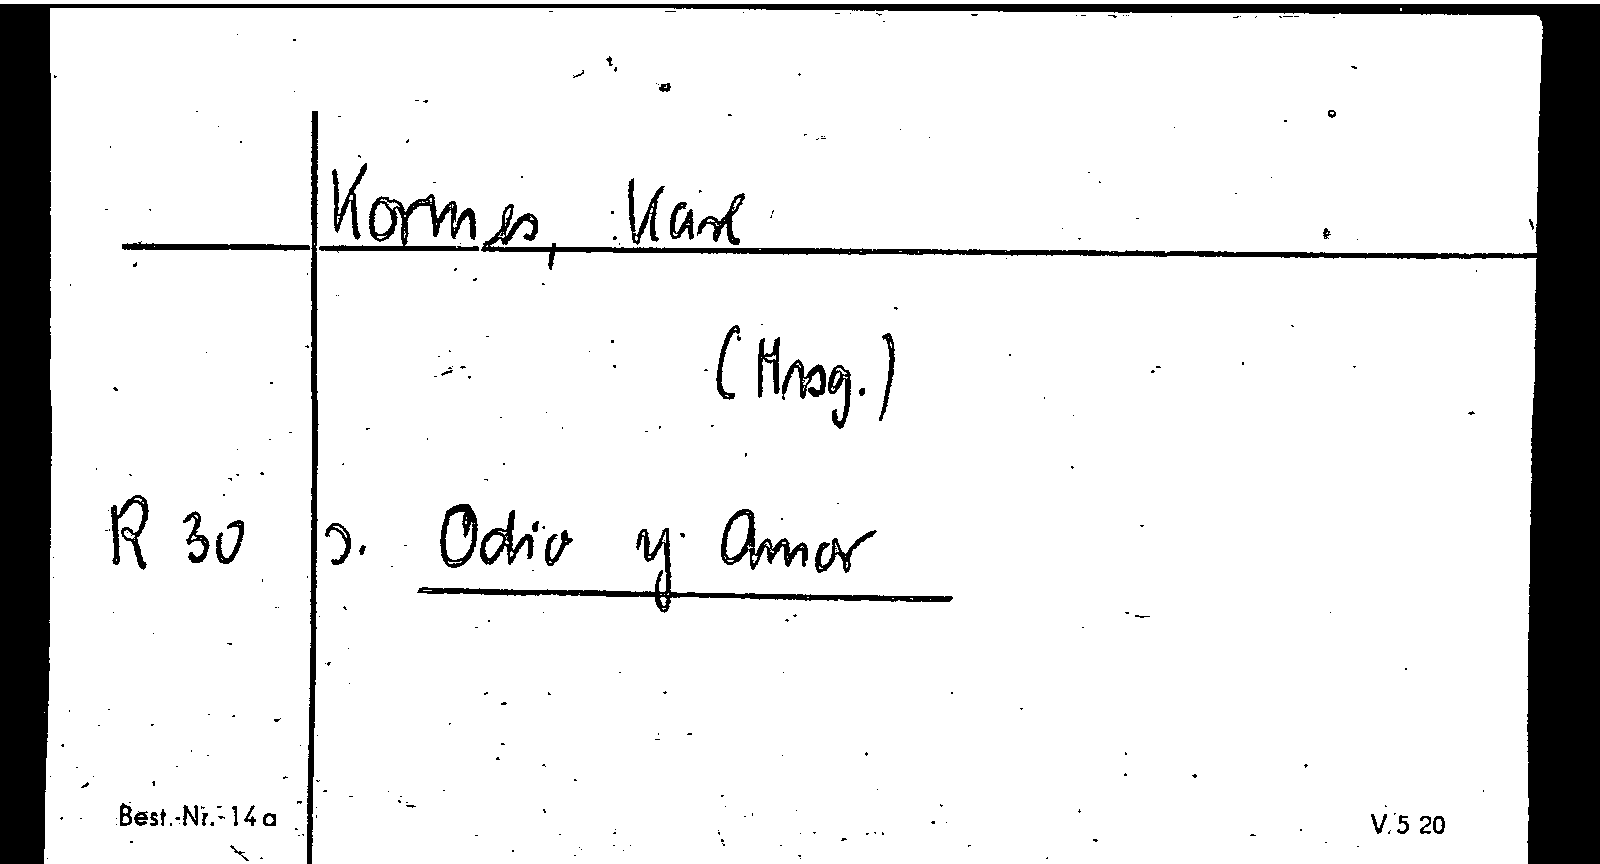 Kormes, Karl
(Hrsg.)
R 30 s. Odio y Amor
Best.-Nr.-14a V.5 20